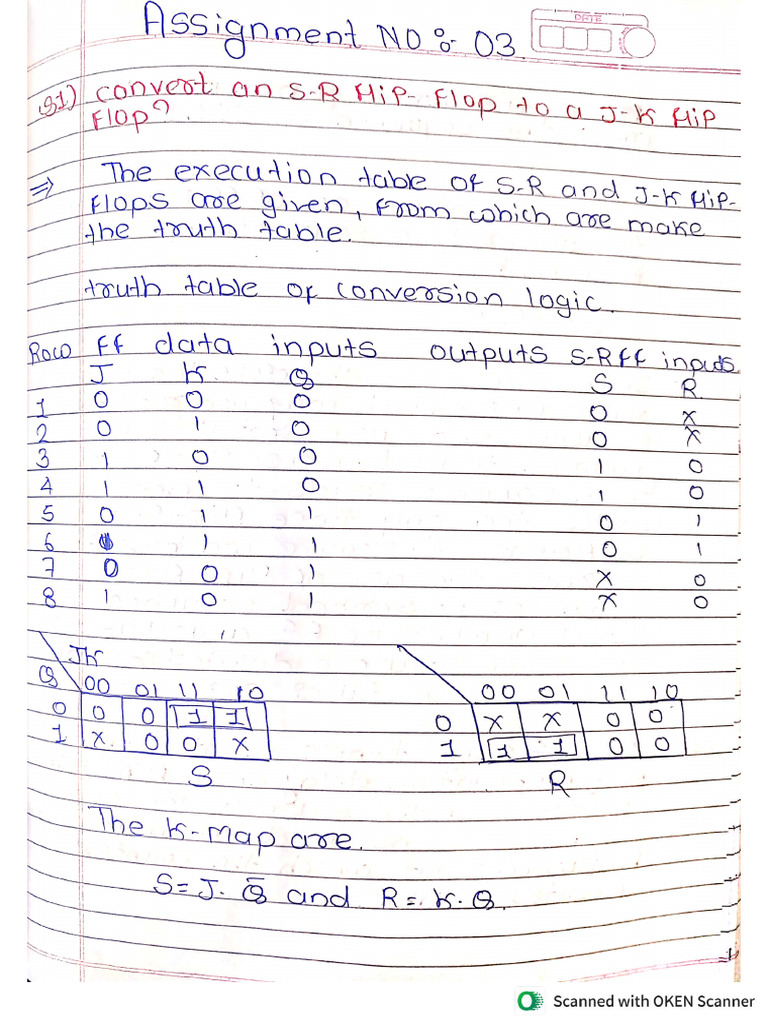 Assignment NO: 03
DATE
Q1) convert an S-R flip-flop to a J-K flip
flop?
⇒ The execution table of S-R and J-K flip-
flops are given, from which are make
the truth table.
truth table of conversion logic.
Row ff data inputs outputs S-R ff inputs
J K Q S R
1 0 0 0 0 x
2 0 1 0 0 x
3 1 0 0 1 0
4 1 1 0 1 0
5 0 1 1 0 1
6 1 1 0 1
7 0 0 1 x 0
8 1 0 1 x 0
JK
Q 00 01 11 10 00 01 11 10
0 0 0 1 1 0 x x 0 0
1 x 0 0 x 1 1 1 0 0
S R
The K-map are.
S = J. Q̄ and R = K. Q.
Scanned with OKEN Scanner